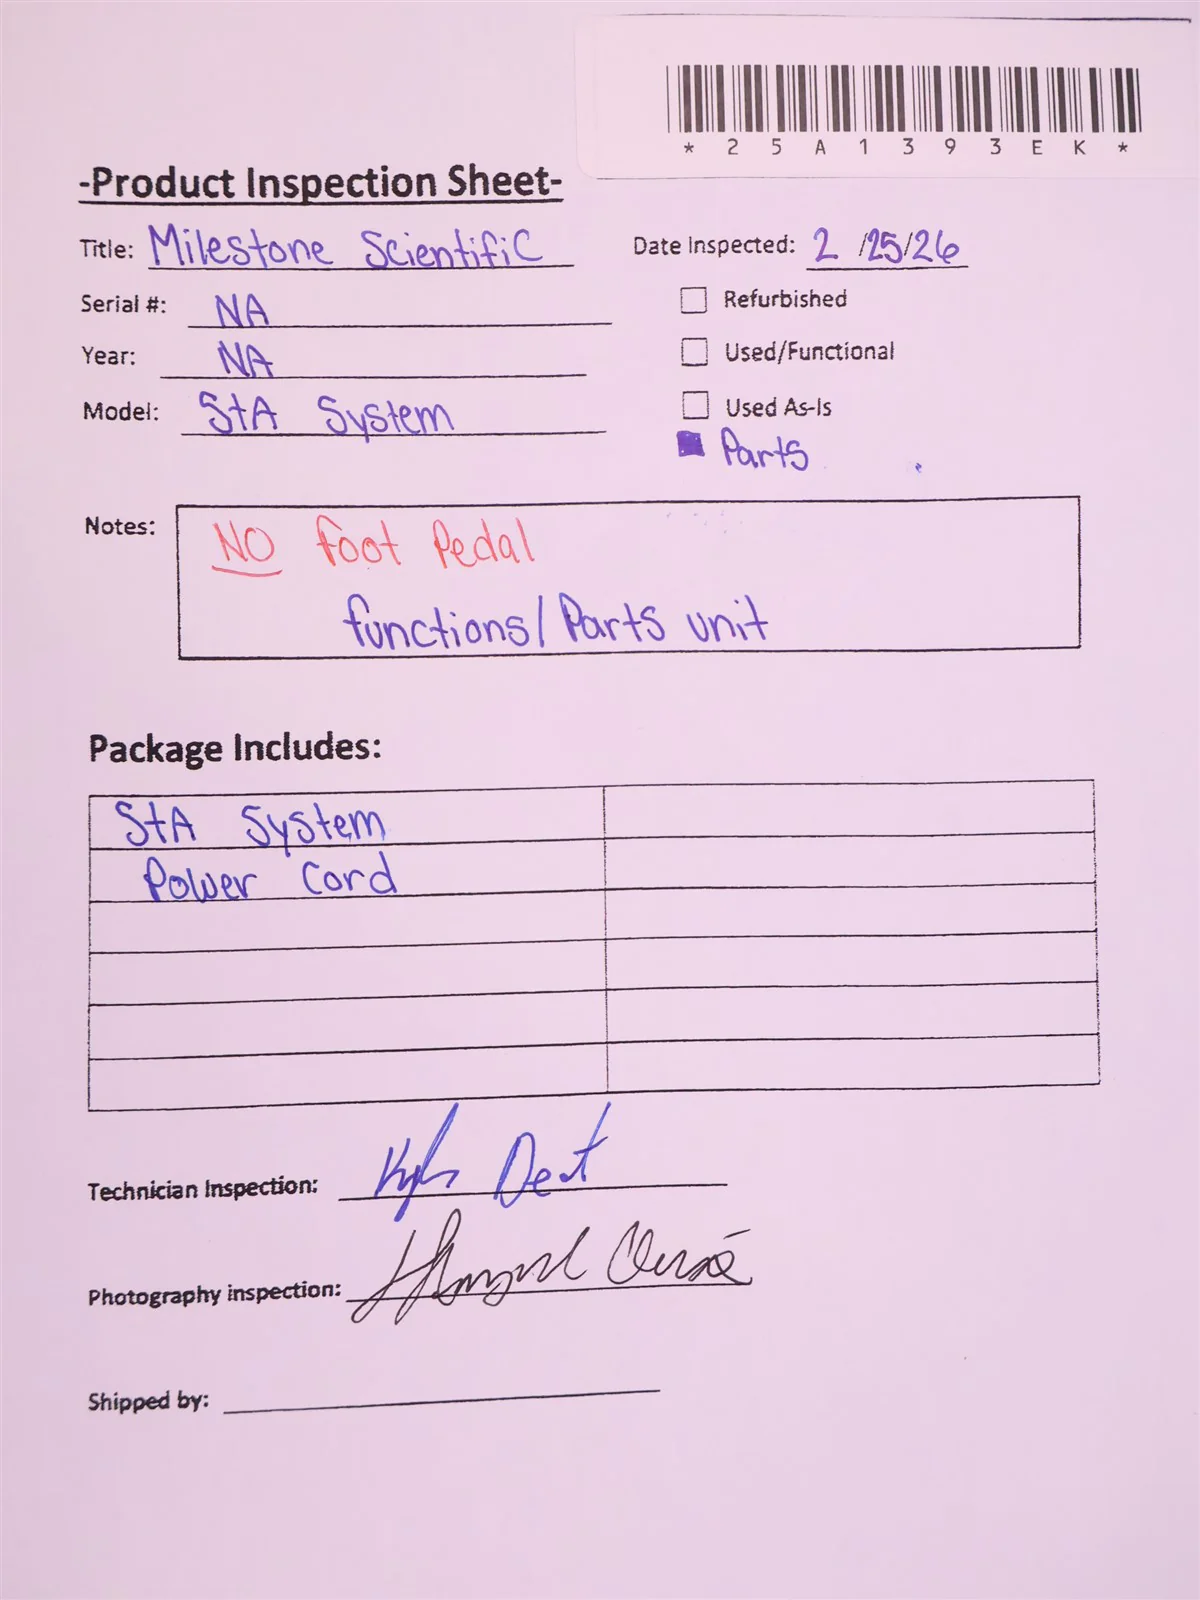 *25A1393EK*
-Product Inspection Sheet-
Title: Milestone Scientific
Date Inspected: 2/25/26
Serial #: NA
Refurbished
Year: NA
Used/Functional
Model: StA System
Used As-Is
Parts
Notes: NO foot Pedal
functions/Parts unit
Package Includes:
StA System
Power Cord
Technician Inspection:
Photography inspection:
Shipped by: